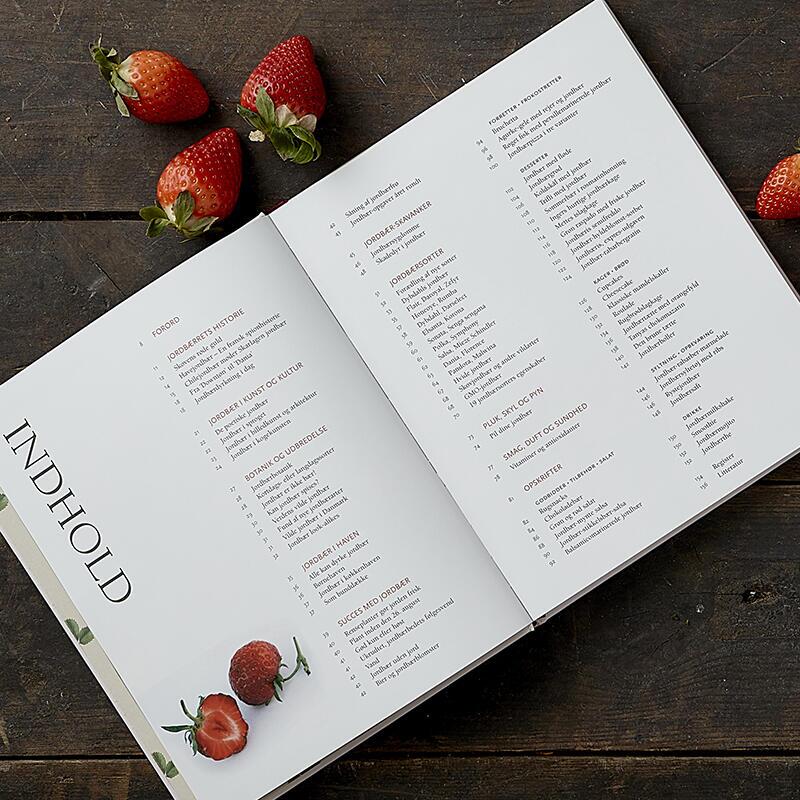 INDHOLD
8 FORORD
JORDBÆRRETS HISTORIE
11 Skovens røde guld
12 Havejordbær – En fransk spionhistorie
14 Chilejordbær møder Skarlagen jordbær
15 Fra 'Downton' til 'Dania'
16 Jordbærdyrkning i dag
JORDBÆR I KUNST OG KULTUR
De poetiske jordbær
Jordbær i sproget
Jordbær i billedkunst og arkitektur
24 Jordbær i kogekunsten
BOTANIK OG UDBREDELSE
27 Jordbærbotanik
28 Kortdags- eller langdagssorter
Jordbær er ikke bær!
Kan jordbær spises?
Verdens vilde jordbær
Fund af nye jordbærarter
31 Vilde jordbær i Danmark
32 Jordbær look-alikes
JORDBÆR I HAVEN
35 Alle kan dyrke jordbær
36 Børnehaven
37 Jordbær i køkkenhaven
37 Som bunddække
SUCCES MED JORDBÆR
39 Renseplanter gør jorden frisk
40 Plant inden den 26. august
40 Gød kun efter høst
41 Ukrudtet, jordbærbedets følgesvend
41 Vand
42 Jordbær uden jord
42 Bier og jordbærblomster
42 Såning af jordbærfrø
43 Jordbær-opgaver året rundt
JORDBÆR-SKAVANKER
45 Jordbærsygdomme
48 Skadedyr i jordbær
JORDBÆRSORTER
Forædling af nye sorter
Dybdahls jordbær
Flair, Daroyal, Zefyr
Honeoye, Rumba
Dybdahl, Darselect
Elsanta, Korona
Sonata, Senga sengana
Polka, Symphony
Salsa, Alice, Schindler
Dania, Florence
Pandora, Malwina
Hvide jordbær
Skovjordbær og andre vildarter
GMO-jordbær
70 19 jordbærsorters egenskaber
PLUK, SKYL OG PYN
73 Pil dine jordbær
74 SMAG, DUFT OG SUNDHED
78 Vitaminer og antioxidanter
81 OPSKRIFTER
GODBIDDER • TILBEHØR • SALAT
82 Rugsnacks
84 Chokoladebær
86 Grøn og rød salat
88 Jordbær-mynte salsa
90 Jordbær-stikkelsbær-salsa
92 Balsamicomarinerede jordbær
FORRETTER • FROKOSTRETTER
94 Bruchetta
96 Agurke-gele med rejer og jordbær
98 Røget fisk med persillemarinerede jordbær
100 Jordbærpizza i tre varianter
DESSERTER
102 Jordbær med fløde
104 Jordbærgrød
106 Koldskål med jordbær
108 Trifli med jordbær
110 Sommerbær i rosmarinhonning
Ingers hurtige jordbærkage
Mettes islagkage
Grøn raspado med friske jordbær
Jordbæris semifreddo
Jordbær-hyldeblomst-sorbet
Jordbæris, expres-udgaven
124 Jordbær-rabarbergratin
KAGER • BRØD
126 Cupcakes
128 Cheesecake
Klassiske mandelskaller
Roulade
Rugbrødslagkage
Jordbærtærte med mangefyld
Tanyas chokoladetærte
140 Den brune tærte
Jordbærboller
SYLTNING • OPBEVARING
144 Jordbær-rabarber-marmelade
146 Jordbærsyltetøj med ribs
146 Rystejordbær
148 Jordbærsaft
DRIKKE
150 Jordbærmilkshake
150 Smoothie
152 Jordbærmojito
152 Jordbærthe
154 Register
156 Litteratur